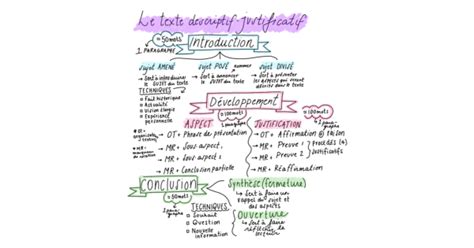 Le texte descriptif justificatif
≈50mots
1 PARAGRAPHE
Introduction
sujet AMENÉ
sujet POSÉ
sujet DIVISÉ
→ Sert à introduire le SUJET du texte
→ Sert à annoncer le SUJET du texte
→ Sert à présenter les ASPECTS qui seront abordés dans le texte
TECHNIQUES
Fait historique
Actualité
Vision élargie
Expérience personnelle
Développement
≈100mots
≈100mots
ASPECT
JUSTIFICATION
→ OT + Phrase de présentation
→ MR + Sous aspect 1
→ MR + Sous aspect 2
→ MR + Conclusion partielle
→ OT + Affirmation @ raison
→ MR + Preuve 1
→ MR + Preuve 2
Procédés (4) Justificatifs
→ MR + Réaffirmation
Conclusion
≈50mots
Synthèse (fermeture)
→ Sert à faire un rappel du sujet et des aspects
TECHNIQUES
Souhait
Question
Nouvelle information
Ouverture
→ Sert à faire réfléchir le lecteur